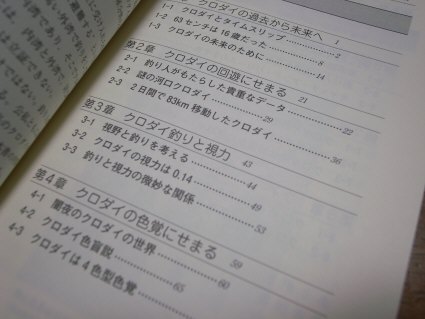 クロダイの過去から未来へ 1
1-1 クロダイとタイムスリップ 2
1-2 63センチは16歳だった 8
1-3 クロダイの未来のために 14
第2章 クロダイの回遊にせまる 21
2-1 釣り人がもたらした貴重なデータ 22
2-2 謎の河口クロダイ 29
2-3 2日間で83km移動したクロダイ 36
第3章 クロダイ釣りと視力 43
3-1 視野と釣りを考える 44
3-2 クロダイの視力は0.14 49
3-3 釣りと視力の微妙な関係 53
第4章 クロダイの色覚にせまる 59
4-1 闇夜のクロダイの世界 60
4-2 クロダイ色盲説 65
4-3 クロダイは4色型色覚